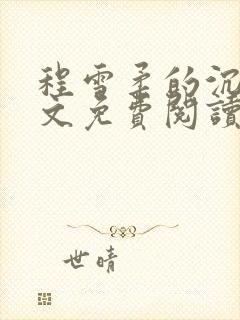 程雪柔的沉
文免費閱讀
世晴